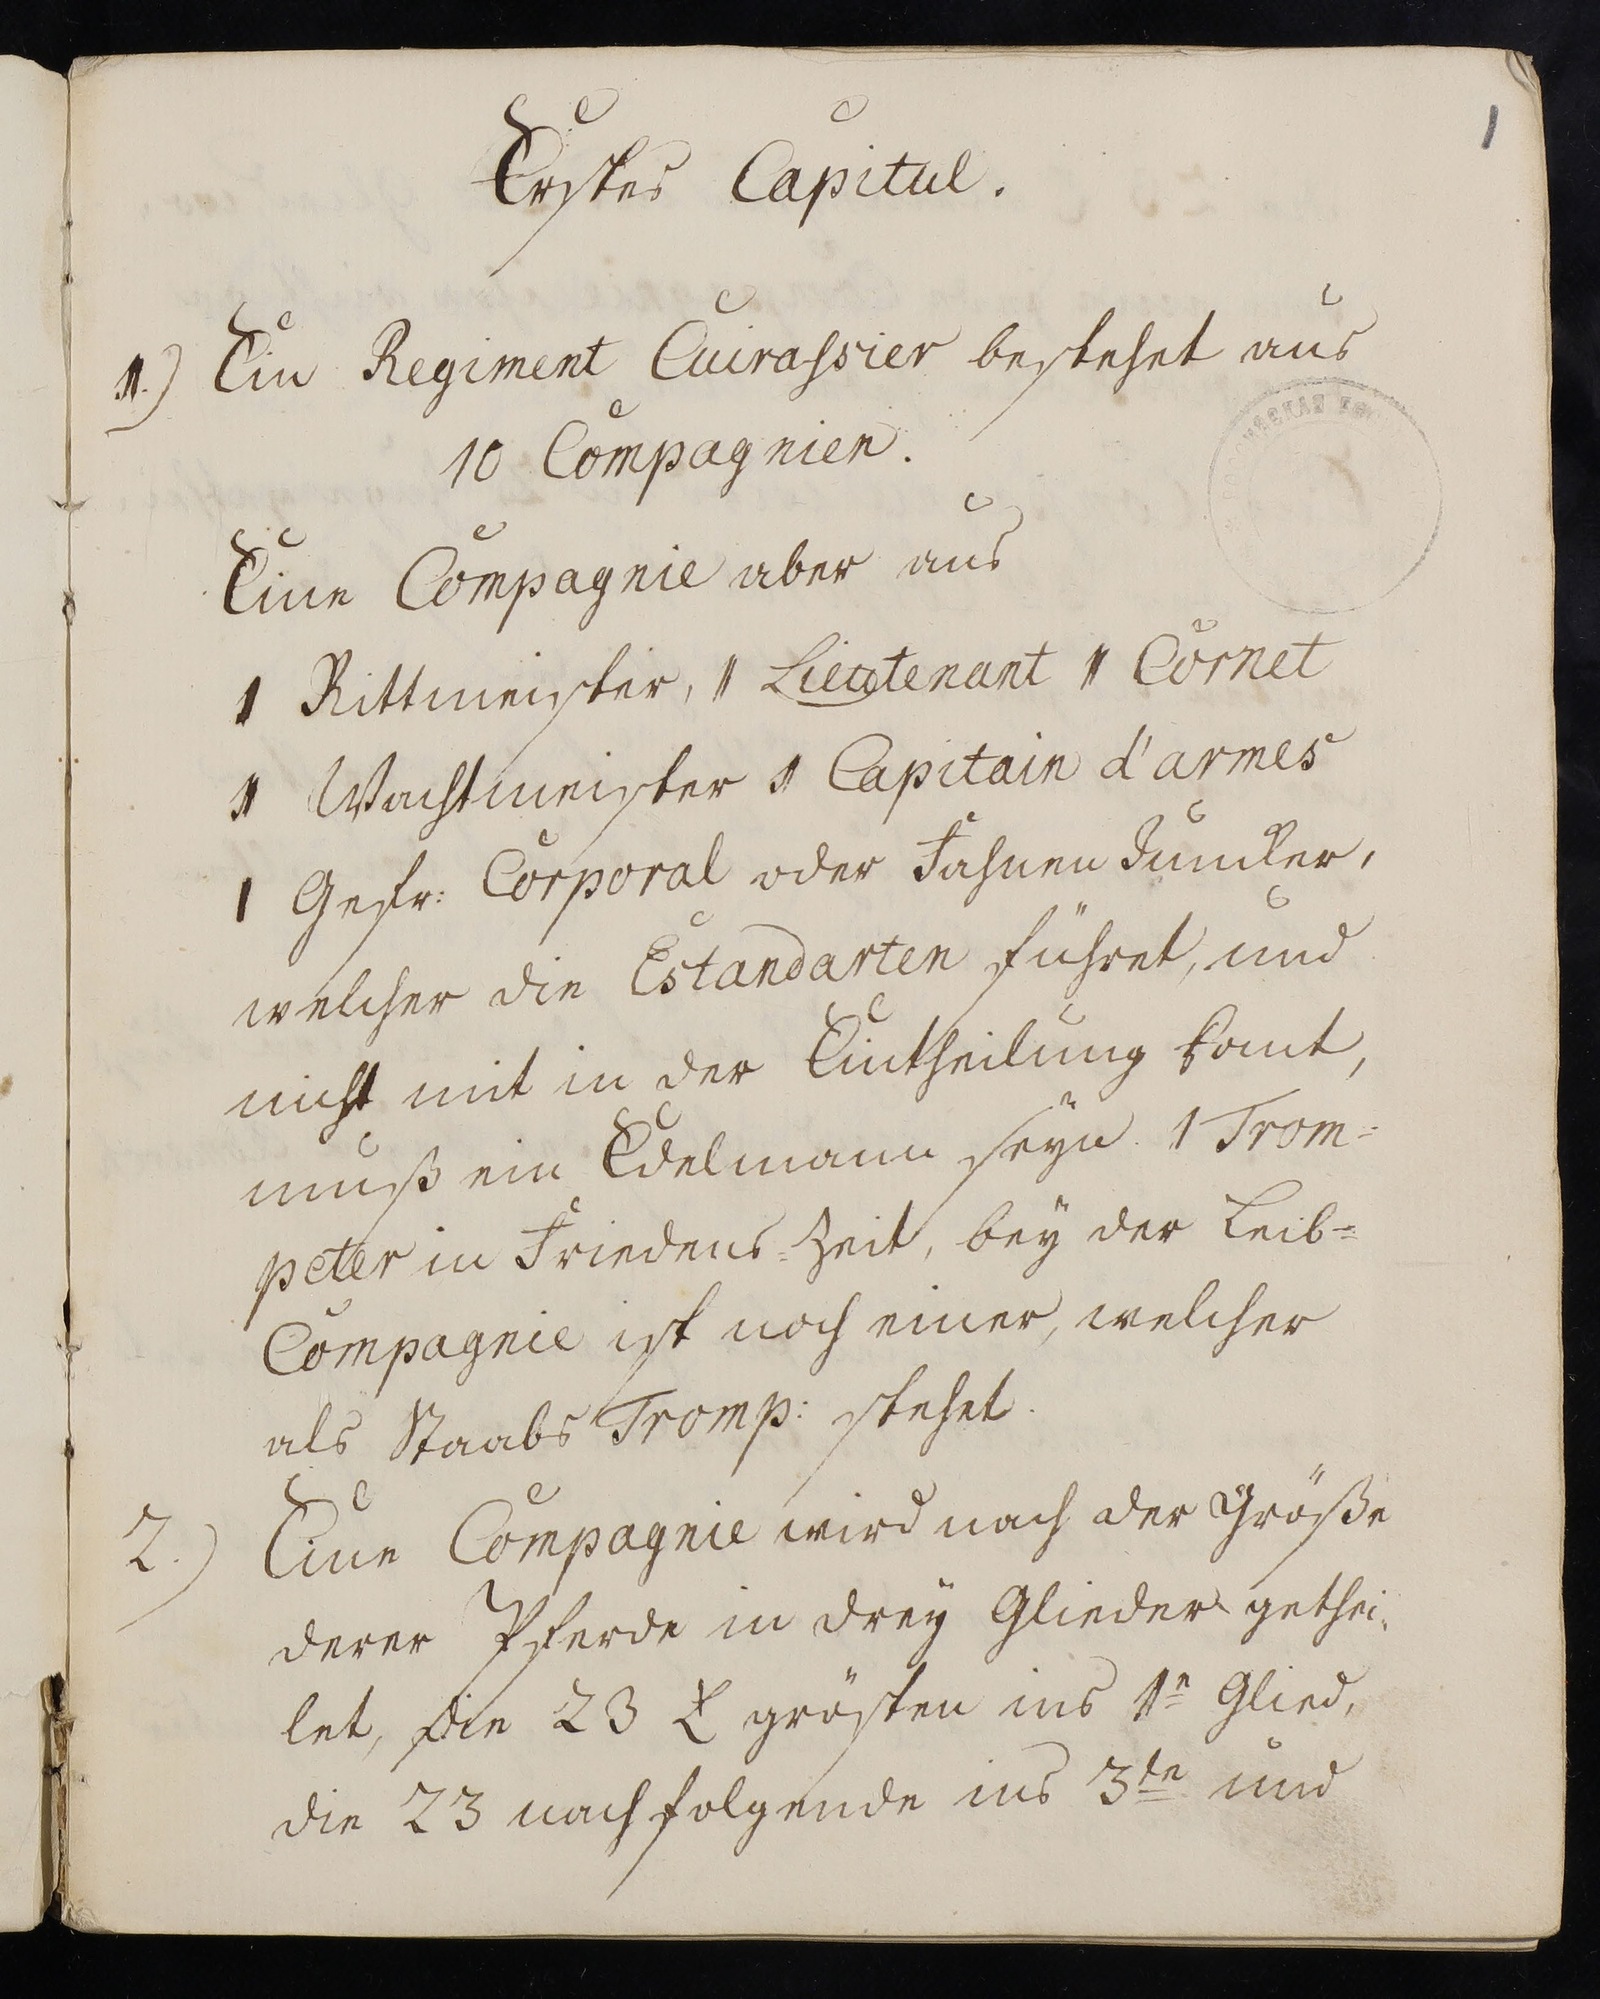 1
Erstes Capitul.
1.) Ein Regiment Cuirassier bestehet aus
10 Compagnien.
Eine Compagnie aber aus
1 Rittmeister, 1 Lieutenant 1 Cornet
1 Wachtmeister 1 Capitain d'armes
1 Gefr: Corporal oder Fahnen Juncker,
welcher die Estandarten führet, und
nicht mit in der Eintheilung komt,
muß ein Edelmann seyn. 1 Trom=
peter in Friedens=Zeit, bey der Leib=
Compagnie ist noch einer, welcher
als Staabs Tromp: stehet.
2.) Eine Compagnie wird nach der Größe
derer Pferde in drey Glieder gethei=
let, die 23 grösten ins 1te Glied,
die 23 nachfolgende ins 3te und